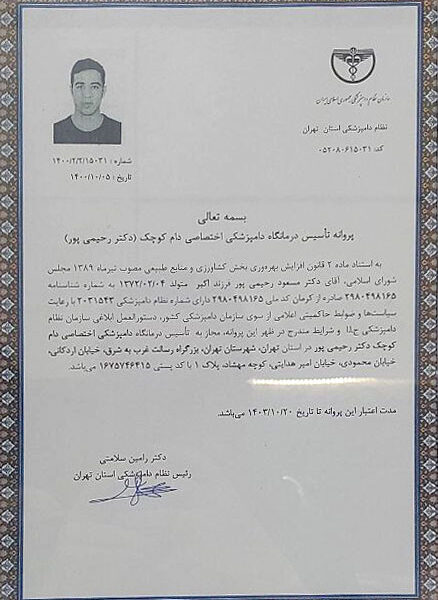 سازمان نظام دامپزشکی جمهوری اسلامی ایران
نظام دامپزشکی استان تهران
کد: ۰۵۲۰۸۰۶۱۵۰۳۱
شماره : ۱۴۰۰/۲/۲/۱۵۰۳۱
تاریخ : ۱۴۰۰/۱۰/۰۵
بسمه تعالی
پروانه تأسیس درمانگاه دامپزشکی اختصاصی دام کوچک (دکتر رحیمی پور)
به استناد ماده ۲ قانون افزایش بهره‌وری بخش کشاورزی و منابع طبیعی مصوب تیرماه ۱۳۸۹ مجلس
شورای اسلامی، آقای دکتر مسعود رحیمی پور فرزند اکبر متولد ۱۳۷۲/۰۲/۰۴ به شماره شناسنامه
۲۹۸۰۴۹۸۱۶۵ صادره از کرمان کد ملی ۲۹۸۰۴۹۸۱۶۵ دارای شماره نظام دامپزشکی ۲۰۳۱۵۴۳ با رعایت
سیاست‌ها و ضوابط حاکمیتی اعلامی از سوی سازمان دامپزشکی کشور، دستورالعمل ابلاغی سازمان نظام
دامپزشکی ج.ا.ا و شرایط مندرج در ظهر این پروانه، مجاز به تأسیس درمانگاه دامپزشکی اختصاصی دام
کوچک دکتر رحیمی پور در استان تهران، شهرستان تهران، بزرگراه رسالت غرب به شرق، خیابان اردکانی،
خیابان محمودی، خیابان امیر هدایتی، کوچه مهشاد، پلاک ۱ با کد پستی ۱۶۷۵۷۴۶۴۱۵ می‌باشد.
مدت اعتبار این پروانه تا تاریخ ۱۴۰۳/۱۰/۲۰ می‌باشد.
دکتر رامین سلامتی
رئیس نظام دامپزشکی استان تهران